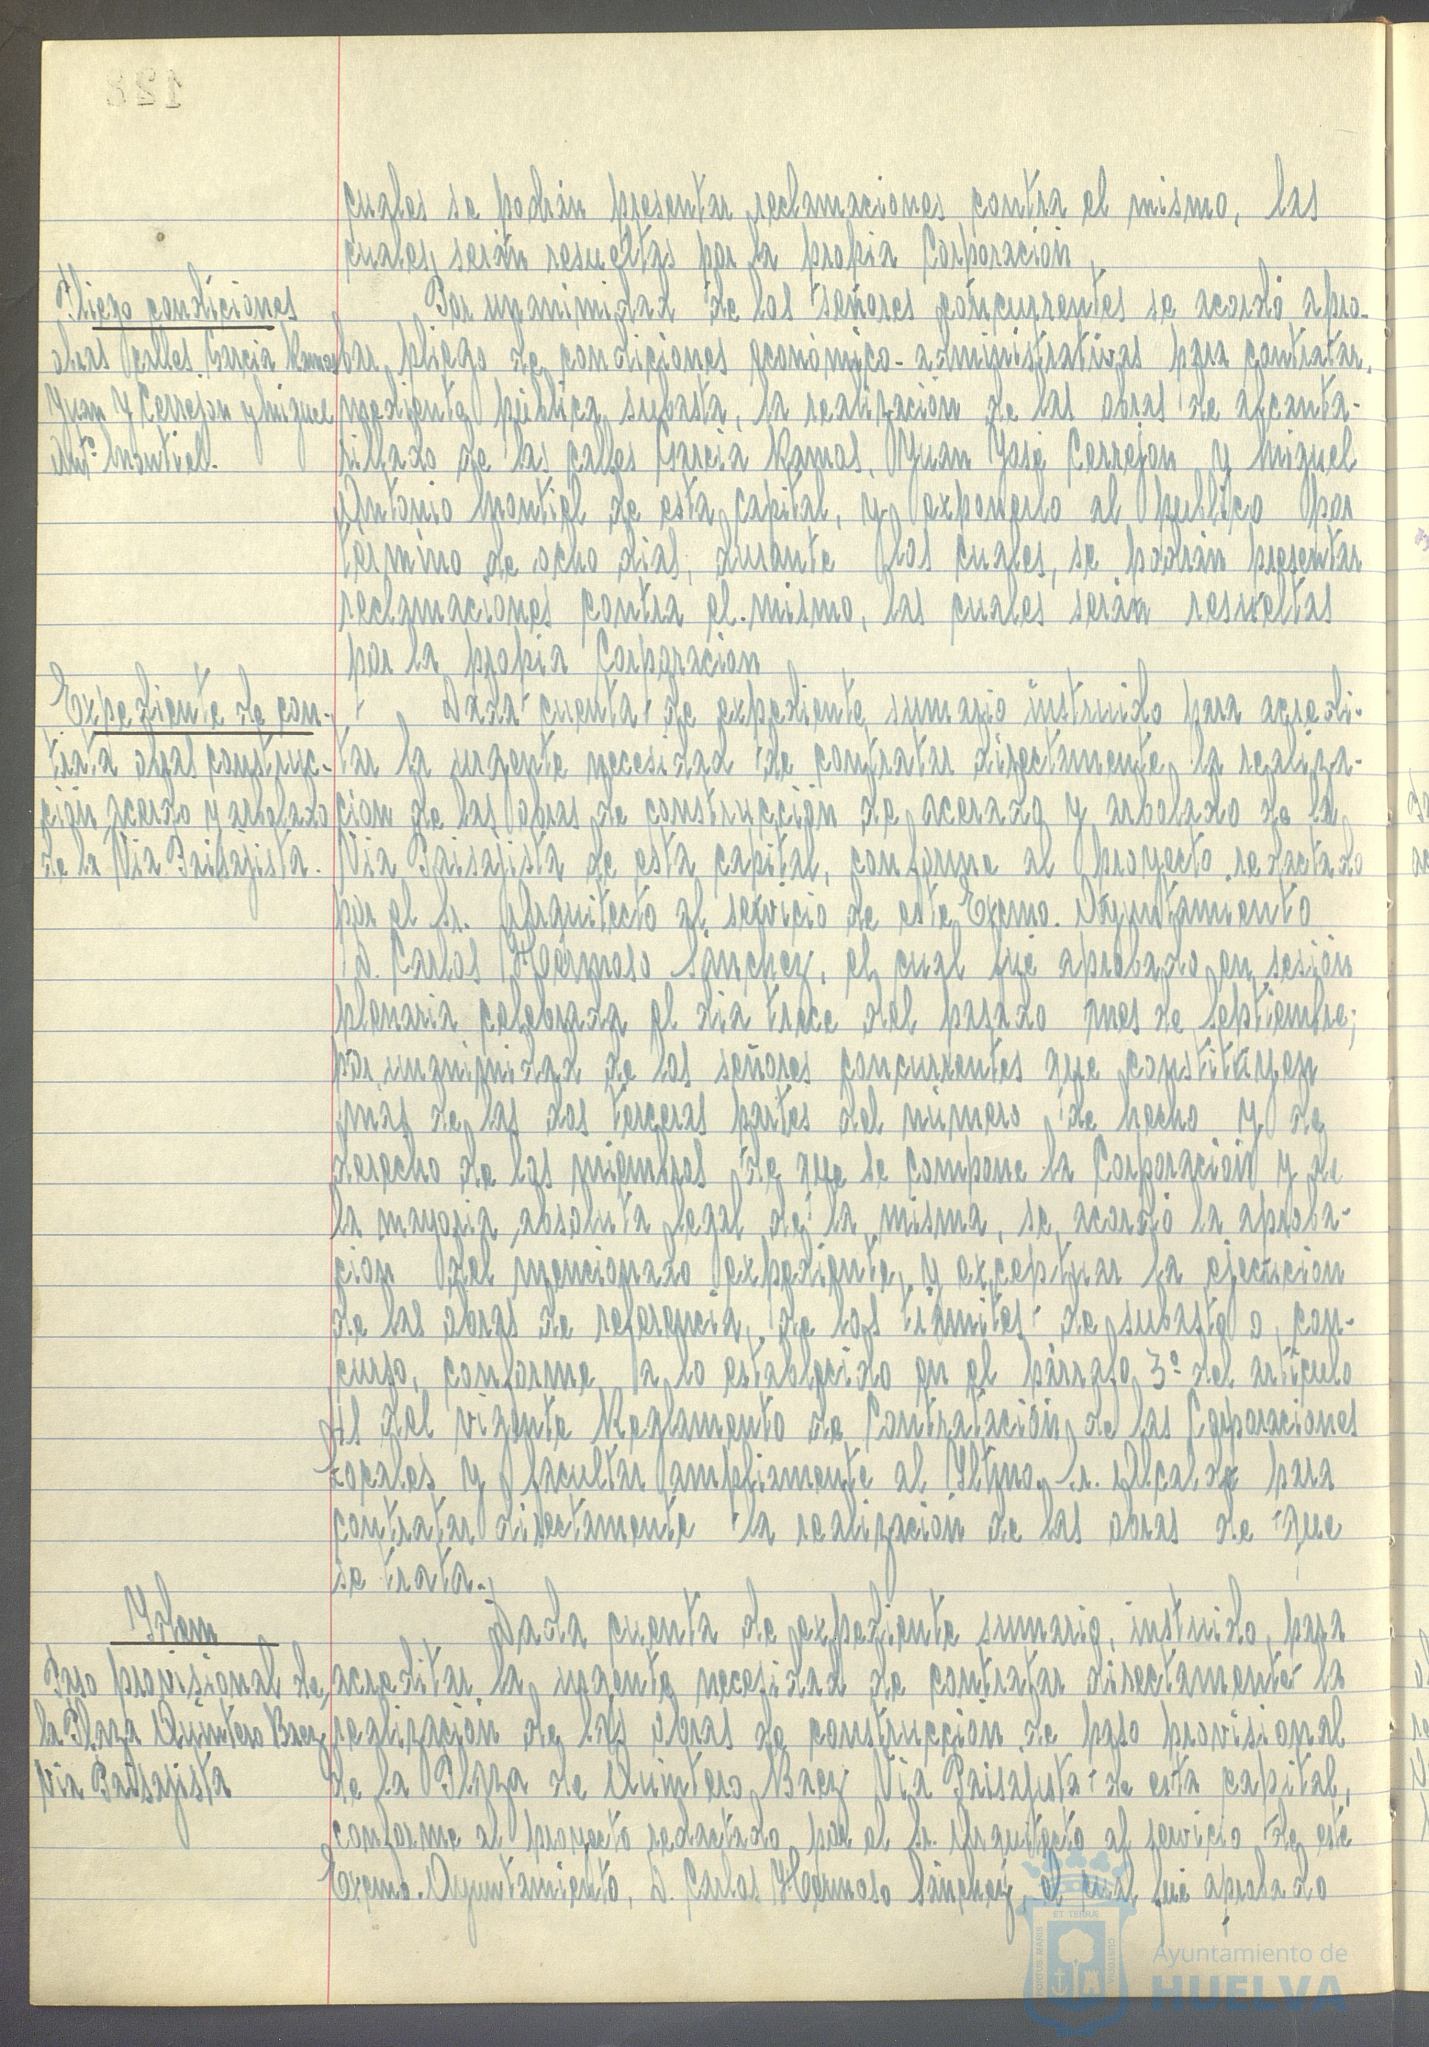 cuales se podrán presentar reclamaciones contra el mismo, las
cuales, serán resueltas por la propia Corporación.
Pliego condiciones
obras calles Garcia Ramos
Juan J Cerrejon y Miguel
Antº Montiel.
Por unanimidad de los señores concurrentes se acordó apro-
bar pliego de condiciones económico-administrativas para contratar,
mediante pública subasta, la realización de las obras de alcanta-
rillado de las calles Garcia Ramos, Juan José Cerrejon y Miguel
Antonio Montiel de esta capital, y exponerlo al publico por
término de ocho dias, durante los cuales, se podrán presentar
reclamaciones contra el mismo, las cuales serán resueltas
por la propia Corporacion
Expediente de con-
trata obras construc-
ción acerdo y arbolado
de la Via Paisajista.
Dada cuenta de expediente sumario instruido para acredi-
tar la urgente necesidad de contratar directamente la realiza-
cion de las obras de construcción de acerado y arbolado de la
Via Paisajista de esta capital, conforme al proyecto redactado
por el Sr. Arquitecto al servicio de este Excmo. Ayuntamiento
D. Carlos Hermoso Sánchez, el cual fue aprobado en sesión
plenaria celebrada el dia trece del pasado mes de Septiembre;
por unanimidad de los señores concurrentes que constituyen
mas de las dos terceras partes del número de hecho y de
derecho de los miembros de que se compone la Corporación y de
la mayoria absoluta legal de la misma, se acordó la aproba-
cion del mencionado expediente, y exceptuar la ejecucion
de las obras de referencia, de los trámites de subasta o con-
curso, conforme a lo establecido en el párrafo 3º del articulo
41 del vigente Reglamento de Contratación de las Corporaciones
Locales y facultar ampliamente al Iltmo. Sr. Alcalde para
contratar directamente la realización de las obras de que
se trata.
Idem
Paso provisional de
la Plaza Quintero Baez
Via Paisajista
Dada cuenta de expediente sumario, instruido, para
acreditar la urgente necesidad de contratar directamente la
realización de las obras de construccion de paso provisional
de la Plaza de Quintero Baez Via Paisajista de esta capital,
conforme al proyecto redactado por el Sr. Arquitecto al servicio de este
Excmo. Ayuntamiento, D. Carlos Hermoso Sánchez, el cual fué aprobado
PORTUS MARIS
ET TERRAE
CUSTODIA
Ayuntamiento de
HUELVA